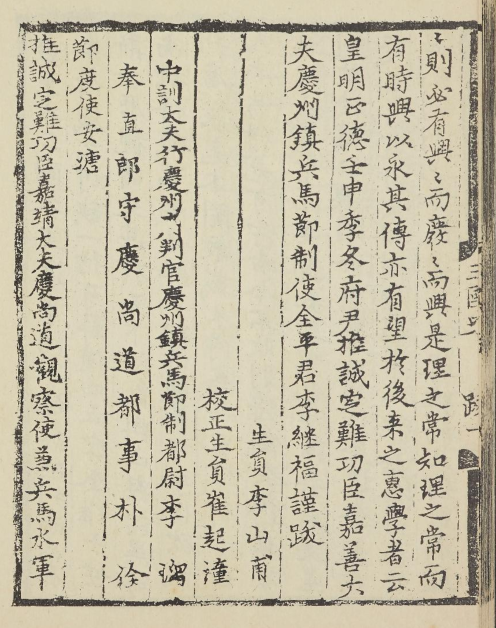 〻則必有興〻而廢〻而興是理之常知理之常而
有時興以永其傳亦有望於後来之惠學者云
皇明正德壬申季冬府尹推誠定難功臣嘉善大
夫慶州鎮兵馬節制使全平君李継福謹跋
生貟李山甫
校正生貟崔起潼
中訓大夫行慶州府判官慶州鎮兵馬節制都尉李瑠
奉直郎守慶尚道都事朴佺
節度使安瑭
推誠定難功臣嘉靖大夫慶尚道觀察使兼兵馬水軍
三國史 跋一